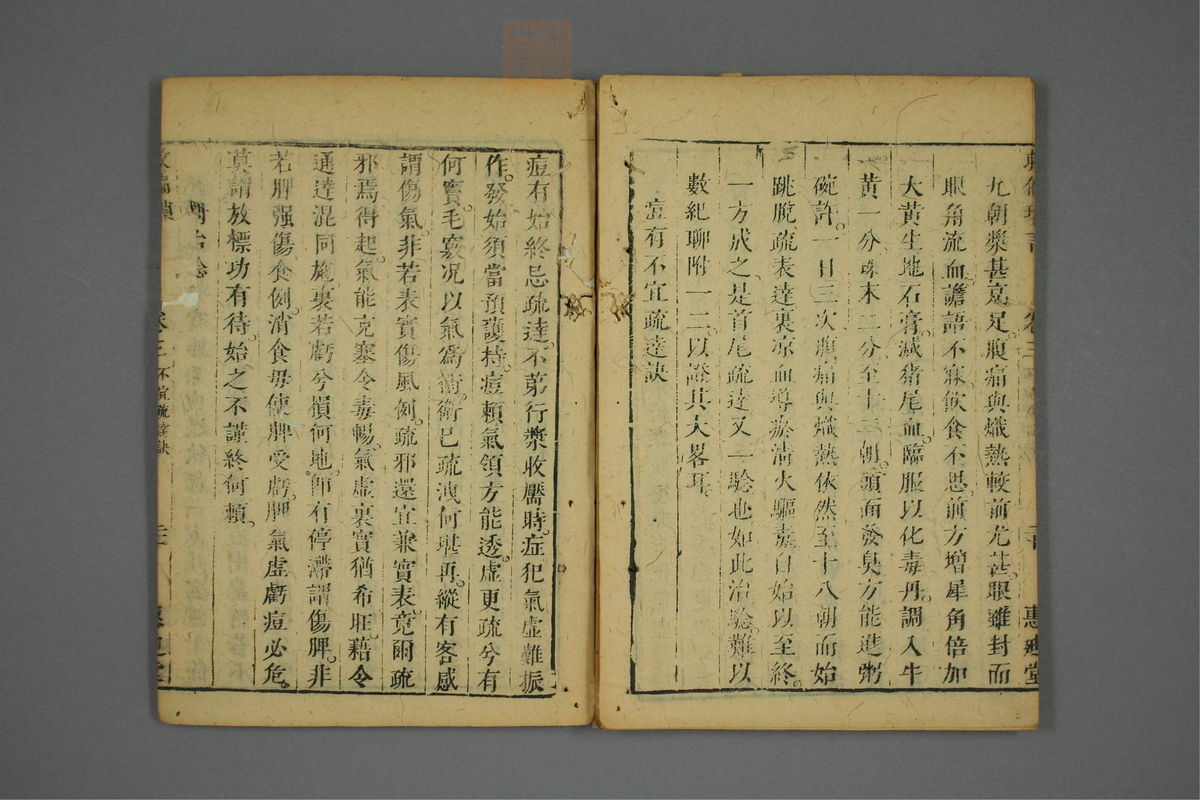 九朝漿甚寬足腹痛與熾熱較前尤甚眼雖封而
眼角流血譫語不寐飲食不思前方增犀角倍加
大黃生地石膏減豬尾血臨服以化毒丹調入牛
黃一分珠末二分至十三朝頭面發臭方能進粥
碗許一日三次腹痛與熾熱依然至十八朝而始
跳脫疏表達裏涼血導瘀清火驅毒自始以至終
一方成之是首尾疏達又一驗也如此治驗難以
數紀聊附一二以證其大畧耳
痘有不宜疏達訣
卷三
惠
堂
痘有始終忌疏達不第行漿收靨時症犯氣虛難振
作發始須當預護持痘賴氣領方能透虛更疏兮有
何實毛竅况以氣爲衛衛已疏洩何堪再縱有客感
謂傷氣非若表實傷風例疏邪還宜兼實表竟爾疏
邪焉得起氣能克塞令毒暢氣虛裏實猶希旺藉令
通達混同施裏若虧兮損何地卽有停滯謂傷脾非
若脾强傷食例消食毋使脾受虧脾氣虛虧痘必危
莫謂放標功有待始之不謹終何頼
卷三
不宜疏達訣